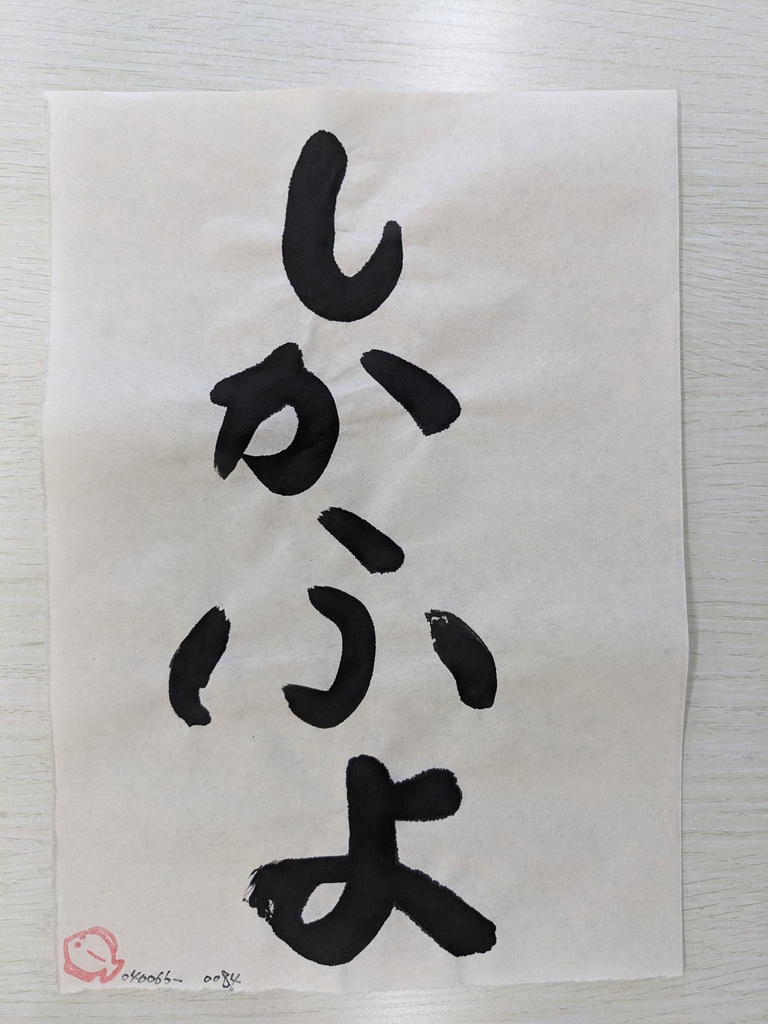 しかふよ
040066- 0084